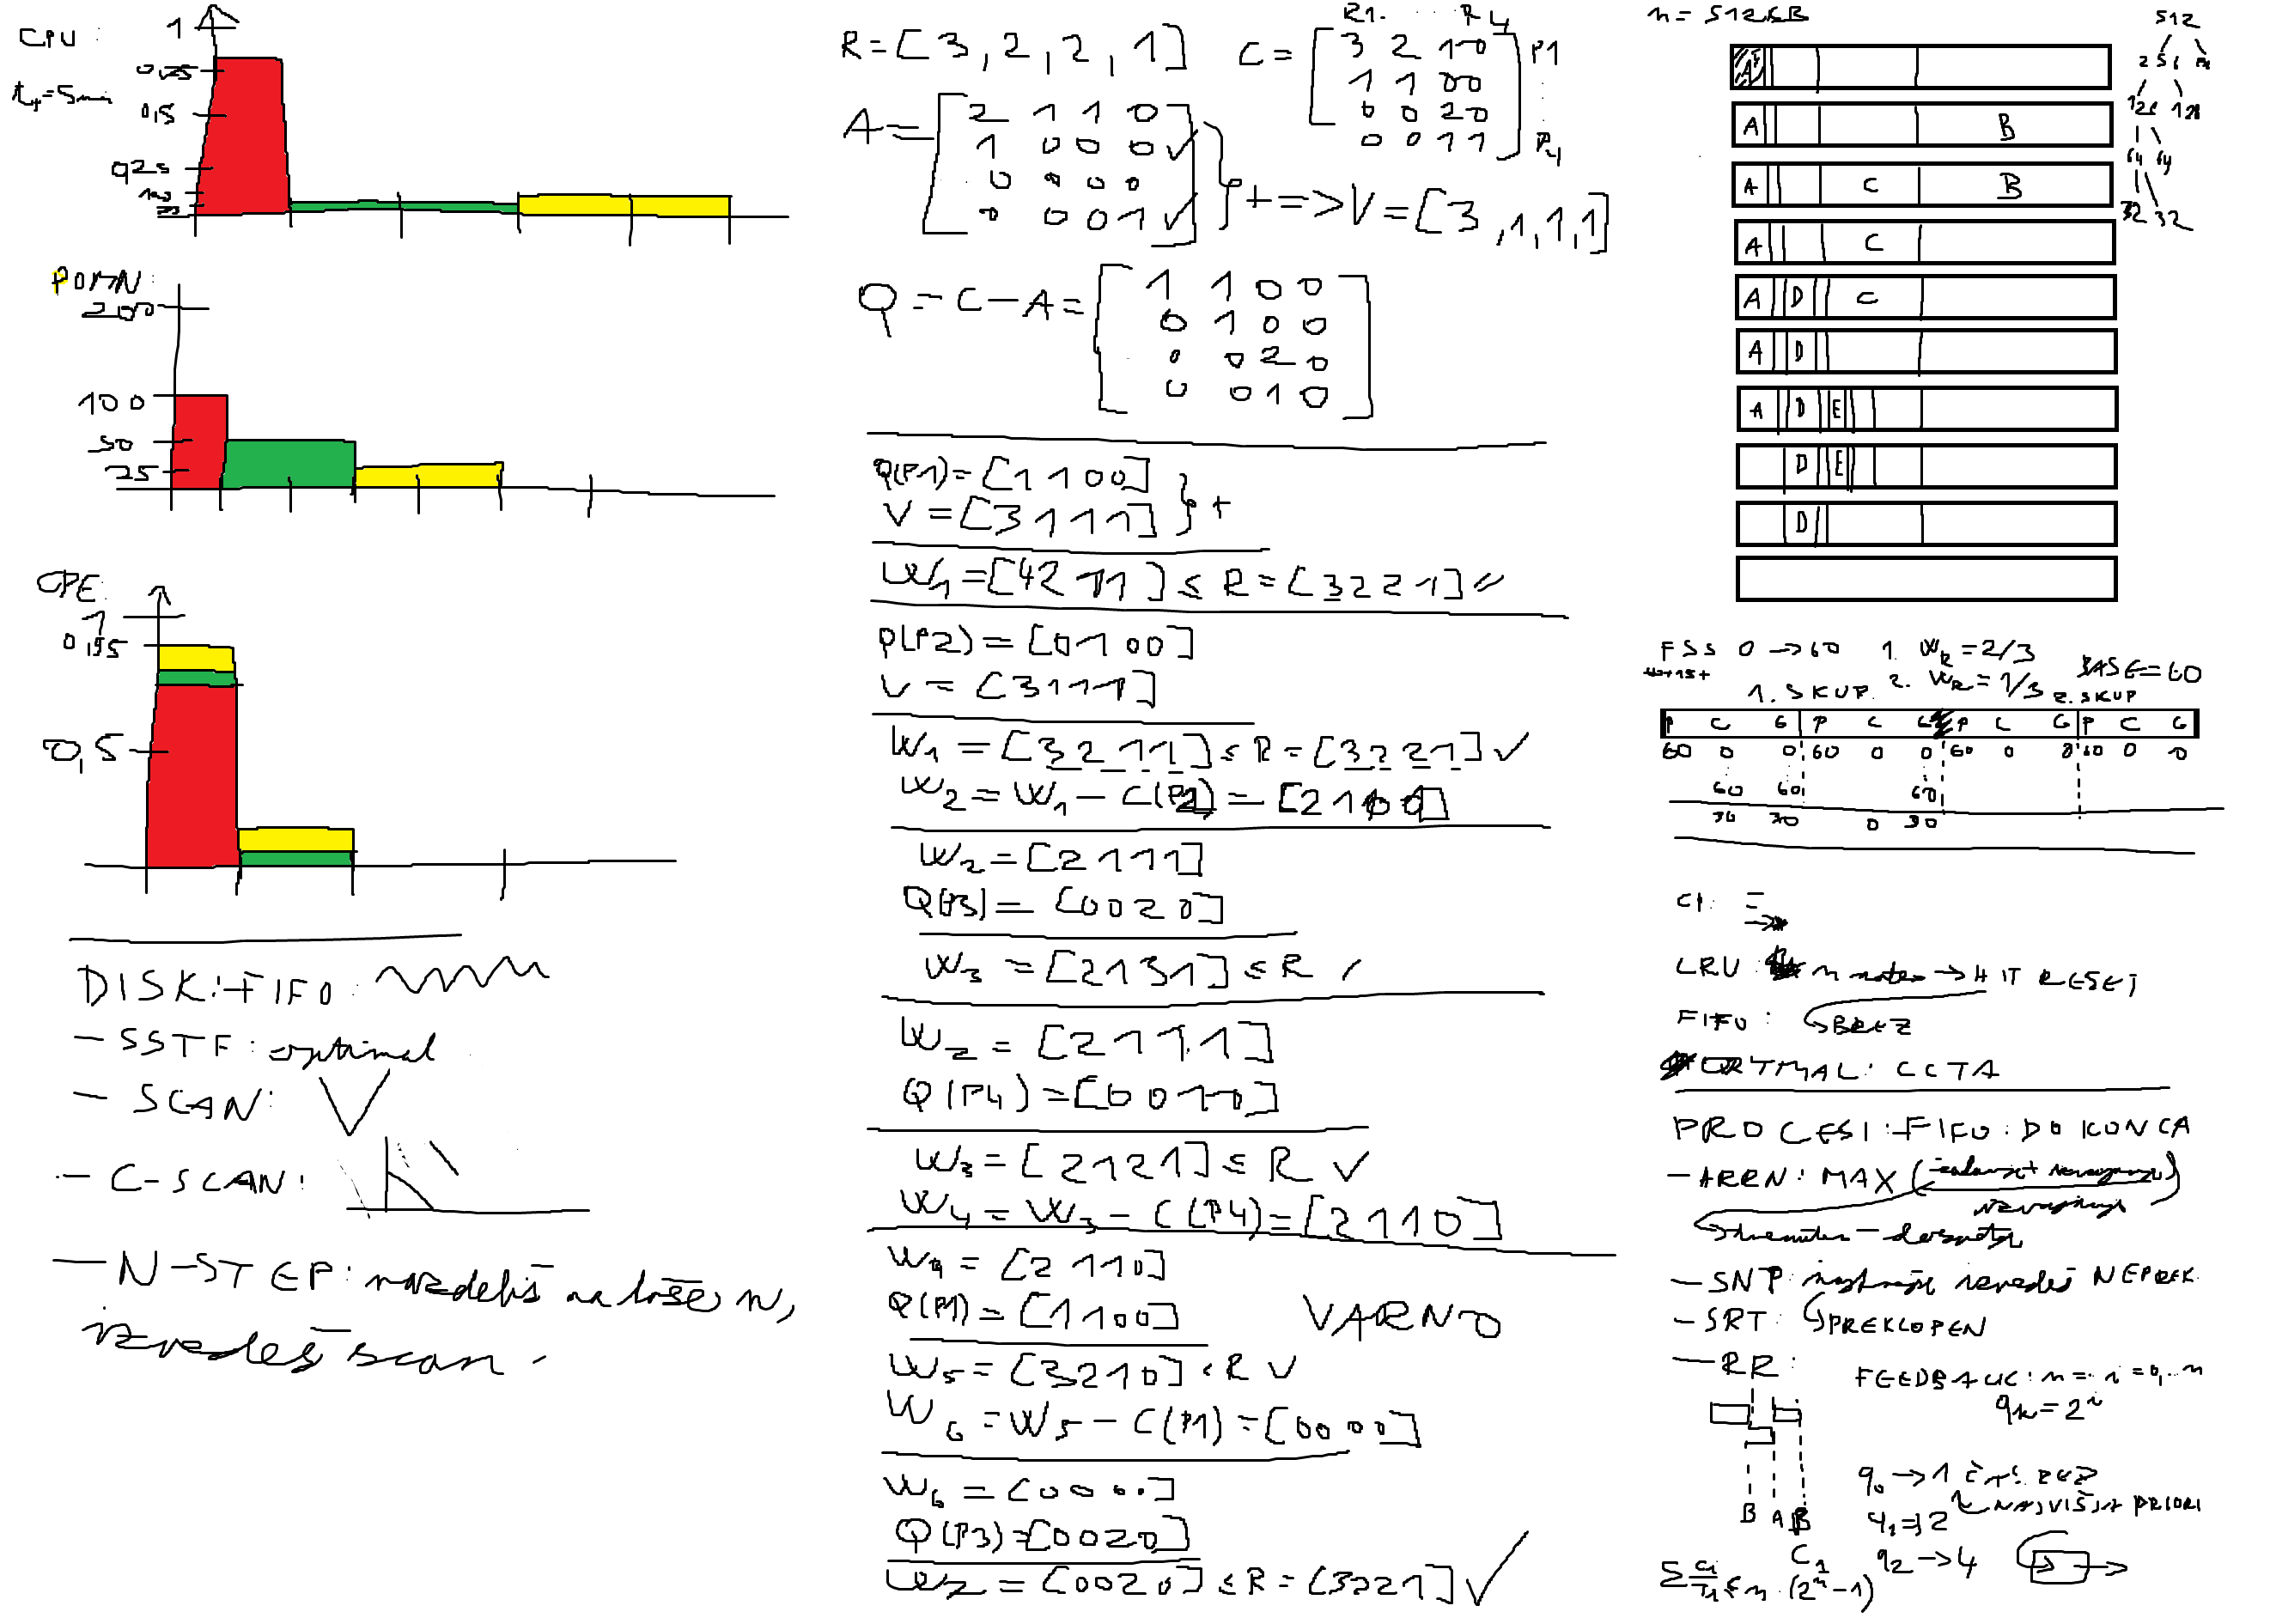 CPU:
1
0,75
0,5
0,25
POMN:
200
100
50
25
CPE:
1
0,95
0,5
DISK: - FIFO:
- SSTF: optimal
- SCAN:
- C-SCAN:
- N-STEP: razdeliš na kose n,
izvedeš scan.
R = [3, 2, 2, 1]
C = [3 2 1 0
1 1 0 0
0 0 2 0
0 0 1 1]
R1. ... R4
P1
P4
A = [2 1 1 0
1 0 0 0 ✓
0 0 0 0
0 0 0 1 ✓]
} + => V = [3, 1, 1, 1]
Q = C - A = [1 1 0 0
0 1 0 0
0 0 2 0
0 0 1 0]
Q(P1) = [1 1 0 0]
V = [3 1 1 1] } +
W1 = [4 2 1 1] ≤ R = [3 2 2 1]
P(P2) = [0 1 0 0]
V = [3 1 1 1]
W1 = [3 2 1 1] ≤ R = [3 2 2 1] ✓
W2 = W1 - C(P2) =
W2 = [2 1 1 1]
Q(P3) = [0 0 2 0]
W3 = [2 1 3 1] ≤ R
W2 = [2 1 1 1]
Q(P4) = [0 0 1 0]
W3 = [2 1 2 1] ≤ R ✓
W4 = W3 - C(P4) = [2 1 1 0]
W4 = [2 1 1 0]
Q(P1) = [1 1 0 0]
VARNO
W5 = [3 2 1 0] < R ✓
W6 = W5 - C(P1) = [0 0 0 0]
W6 = [0 0 0 0]
Q(P3) = [0 0 2 0]
W7 = [0 0 2 0] ≤ R = [3 2 2 1] ✓
n = 512kB
512
256
128 128
64 64
32 32
A
A B
A C B
A C
A D C
A D
A D E
D E
D
FSS 0 → 60
1. WR = 2/3
2. WR = 1/3
BASE = 60
1. SKUP.
2. SKUP
P C G P C G P C G P C G
60 0 0 60 0 0 60 0 0 60 0 0
60 60 60
30 30 0 30
LRU: → HIT RESET
FIFO: BREZ
OPTIMAL:
PROCESI: - FIFO: DO KONCA
- HRRN: MAX
- SNP: izvedeš NEPREK.
- SRT: PREKLOPEN
- RR:
FEEDBACK: n = i = 0,..n
qk = 2^i
q0 → 1
NAJVIŠJA PRIORI
q1 → 2
q2 → 4
B A B
C